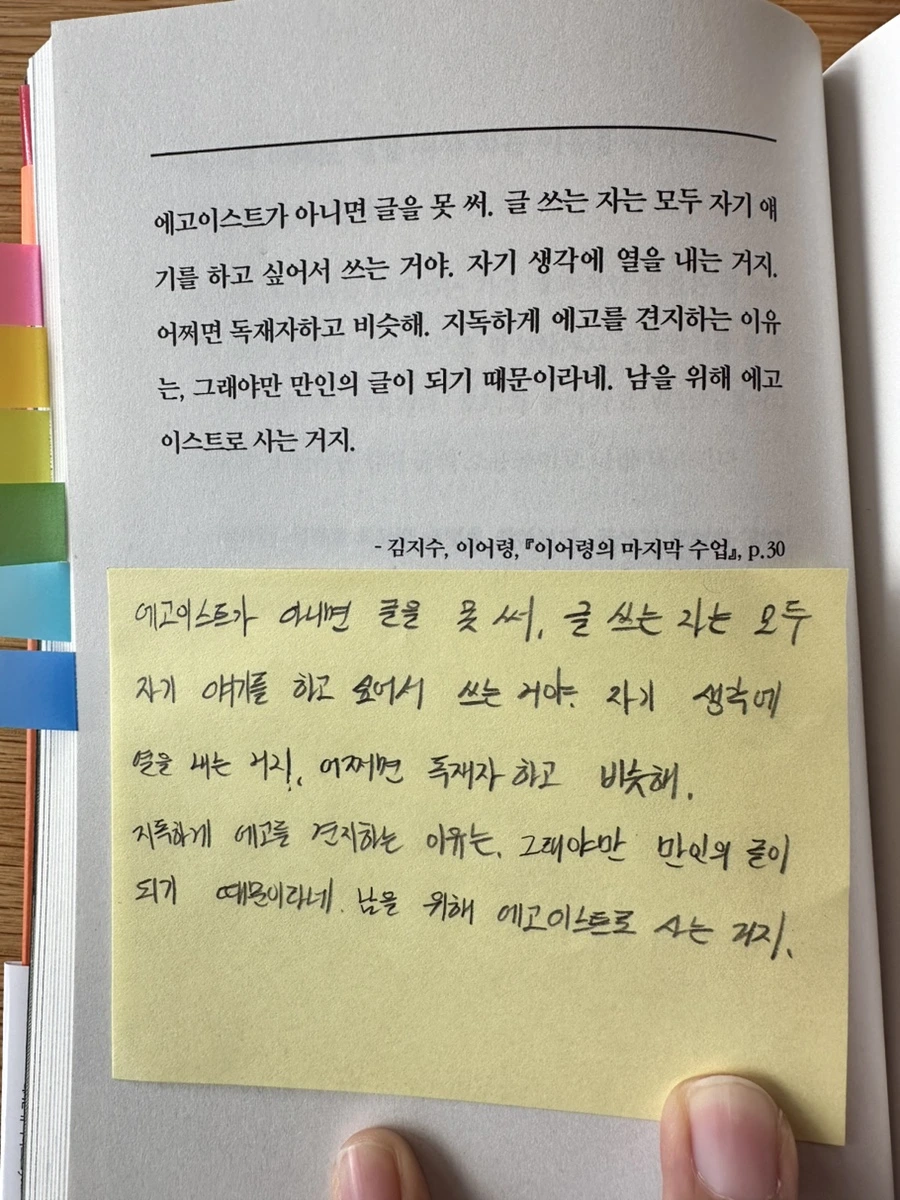 에고이스트가 아니면 글을 못 써. 글 쓰는 자는 모두 자기 얘
기를 하고 싶어서 쓰는 거야. 자기 생각에 열을 내는 거지.
어쩌면 독재자하고 비슷해. 지독하게 에고를 견지하는 이유
는, 그래야만 만인의 글이 되기 때문이라네. 남을 위해 에고
이스트로 사는 거지.
- 김지수, 이어령, 『이어령의 마지막 수업』, p.30
에고이스트가 아니면 글을 못 써. 글 쓰는 자는 모두
자기 얘기를 하고 싶어서 쓰는 거야. 자기 생각에
열을 내는 거지. 어쩌면 독재자하고 비슷해.
지독하게 에고를 견지하는 이유는, 그래야만 만인의 글이
되기 때문이라네. 남을 위해 에고이스트로 사는 거지.